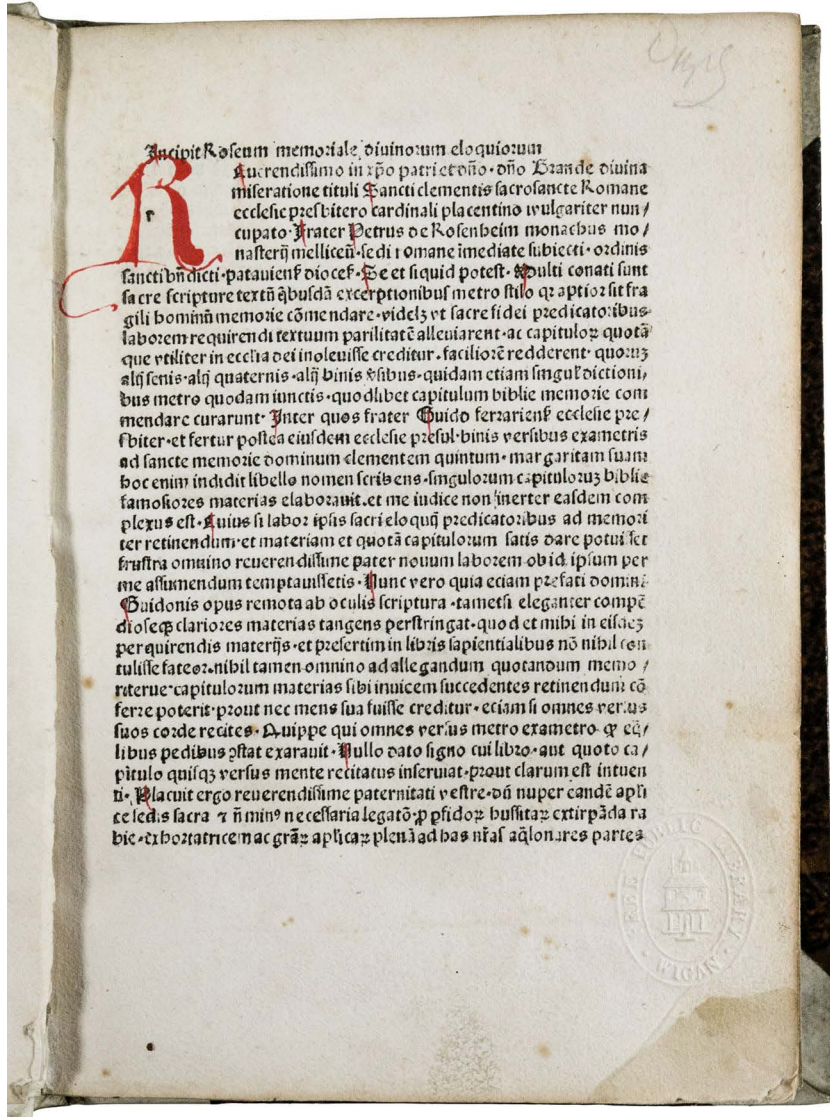 Incipit Roseum memoriale diuinorum eloquiorum
R Euerendissimo in xp̄o patri et dn̄o · dn̄o Brande diuina
miseratione tituli Sancti clementis sacrosancte Romane
ecclesie presbitero cardinali placentino wulgariter nun/
cupato · Frater Petrus de Rosenheim monachus mo/
nasterij mellicen̄ · sedi romane īmediate subiecti · ordinis
sancti bn̄dicti · patauienſ dioceſ · Se et si quid potest · Multi conati sunt
sacre scripture textū q̄busdā excerptionibus metro stilo qꝛ aptior sit fra
gili hominū memorie cōmendare · videlꝫ vt sacre fidei predicatoribus
laborem requirendi textuum parilitatē alleuiarent · ac capituloꝝ quotā
que vtiliter in ecclīa dei inoleuisse creditur · faciliorē redderent · quoruꝫ
alij senis · alij quaternis · alij binis v̄sibus · quidam etiam singul̄ dictioni,
bus metro quodam iunctis · quodlibet capitulum biblie memorie com
mendare curarunt · Inter quos frater Guido ferrarienſ ecclesie pre/
sbiter · et fertur postea eiusdem ecclesie presul · binis versibus exametris
ad sancte memorie dominum clementem quintum · margaritam suam
hoc enim indidit libello nomen scribens · singulorum capituloruꝫ biblie
famosiores materias elaborauit · et me iudice non inerter easdem com
plexus est · Cuius si labor ipsis sacri eloquij predicatoribus ad memori
ter retinendum · et materiam et quotā capitulorum satis dare potuisset
frustra omnino reuerendissime pater nouum laborem ob id ipsum per
me assumendum temptauissetis · Nunc vero quia eciam prefati domini
Guidonis opus remota ab oculis scriptura · tametsi eleganter compē
dioseqꝫ clariores materias tangens perstringat · quod et mihi in eisdeꝫ
perquirendis materijs · et presertim in libris sapientialibus nō nihil con
tulisse fateor · nihil tamen omnino ad allegandum quotandum memo/
riterue · capitulorum materias sibi inuicem succedentes retinendum cō
ferre poterit · prout nec mens sua fuisse creditur · eciam si omnes versus
suos corde recites · Quippe qui omnes versus metro exametro eq̄/
libus pedibus ꝯstat exarauit · Nullo dato signo cui libro · aut quoto ca/
pitulo quisqꝫ versus mente recitatus inseruiat · prout clarum est intuen
ti · Placuit ergo reuerendissime paternitati vestre · dū nuper eandē apli
ce sedis sacra ⁊ n̄ minꝰ necessaria legatō · ꝓ ꝑfidoꝝ hussitaꝝ extirpāda ra
bie · exhortatricem ac grāꝝ aplicaꝝ plenā ad has nr̄as aq̄lonares partes
FREE PUBLIC LIBRARY
WIGAN